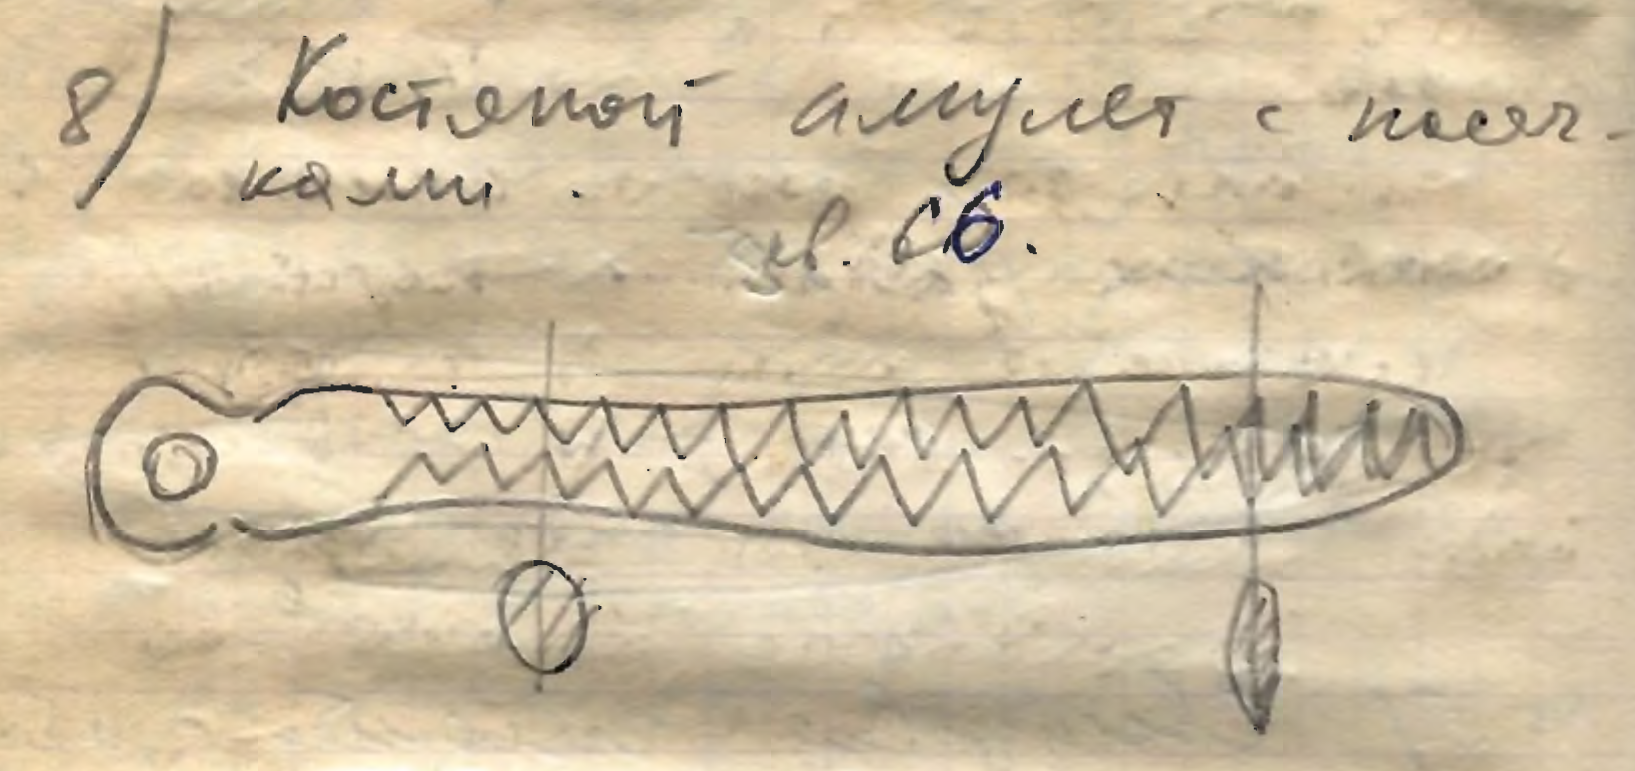 8) Костяной амулет с насеч-
ками.
кв. 66.